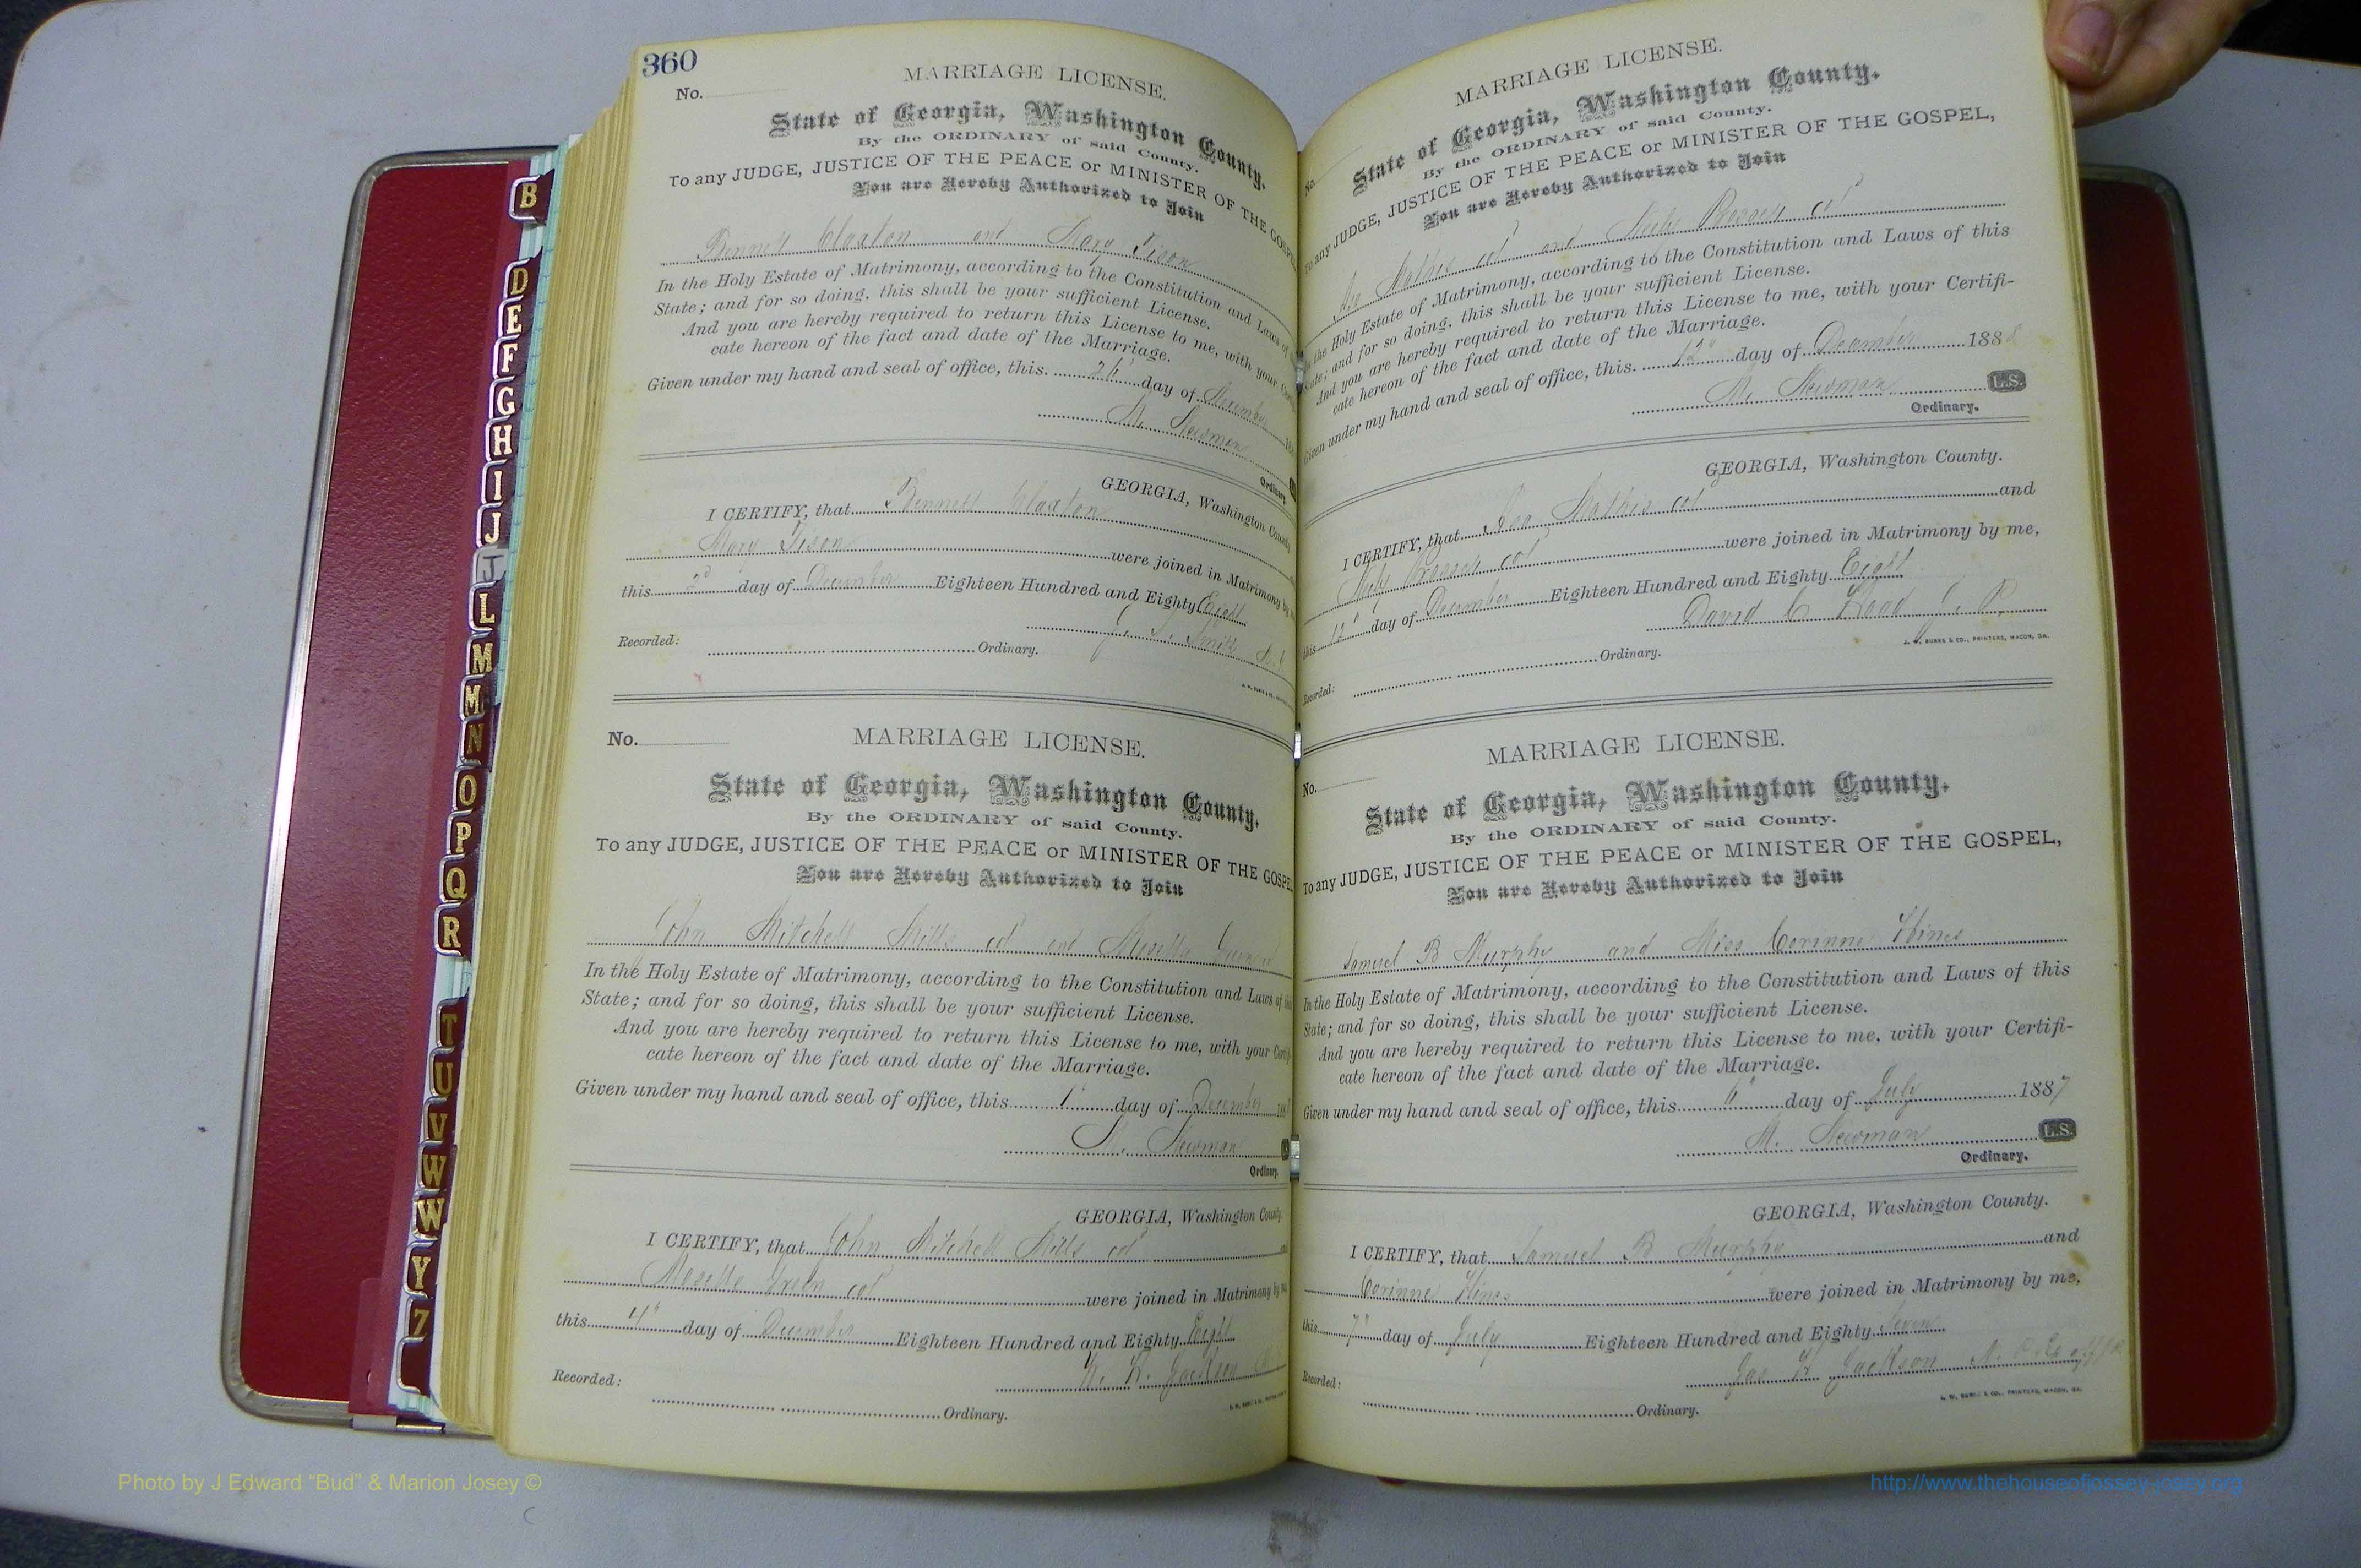 360
No.
MARRIAGE LICENSE.
State of Georgia, Washington County.
By the ORDINARY of said County.
To any JUDGE, JUSTICE OF THE PEACE or MINISTER OF THE GOSPEL
You are Hereby Authorized to Join
Bennett Claxton and Mary Tison
In the Holy Estate of Matrimony, according to the Constitution and Laws of
State; and for so doing, this shall be your sufficient License.
And you are hereby required to return this License to me, with your
cate hereon of the fact and date of the Marriage.
Given under my hand and seal of office, this. day of December
M. Newman
Ordinary.
GEORGIA, Washington County
I CERTIFY, that Bennett Claxton
Mary Tison were joined in Matrimony by
this 2d day of December Eighteen Hundred and Eighty Eight
Smith
Recorded: Ordinary.
No.
MARRIAGE LICENSE.
State of Georgia, Washington County.
By the ORDINARY of said County.
To any JUDGE, JUSTICE OF THE PEACE or MINISTER OF THE GOSPEL
You are Hereby Authorized to Join
John Mitchell Mills col and
In the Holy Estate of Matrimony, according to the Constitution and Laws of
State; and for so doing, this shall be your sufficient License.
And you are hereby required to return this License to me, with your
cate hereon of the fact and date of the Marriage.
Given under my hand and seal of office, this 1" day of December 188
M. Newman
Ordinary.
GEORGIA, Washington County
I CERTIFY, that John Mitchell Mills col
Green col were joined in Matrimony by
this 4" day of December Eighteen Hundred and Eighty Eight
Jackson
Recorded: Ordinary.
MARRIAGE LICENSE.
No.
State of Georgia, Washington County.
By the ORDINARY of said County.
To any JUDGE, JUSTICE OF THE PEACE or MINISTER OF THE GOSPEL,
You are Hereby Authorized to Join
Mathis col and col
In the Holy Estate of Matrimony, according to the Constitution and Laws of this
State; and for so doing, this shall be your sufficient License.
And you are hereby required to return this License to me, with your Certifi-
cate hereon of the fact and date of the Marriage.
Given under my hand and seal of office, this. 12" day of December 1888
M. Newman L.S.
Ordinary.
GEORGIA, Washington County.
I CERTIFY, that Mathis col and
col were joined in Matrimony by me,
this 12" day of December Eighteen Hundred and Eighty Eight
David C
J. W. BURKE & CO., PRINTERS, MACON, GA.
Recorded: Ordinary.
MARRIAGE LICENSE.
No.
State of Georgia, Washington County.
By the ORDINARY of said County.
To any JUDGE, JUSTICE OF THE PEACE or MINISTER OF THE GOSPEL,
You are Hereby Authorized to Join
Samuel B Murphy and Miss Corinne Hines
In the Holy Estate of Matrimony, according to the Constitution and Laws of this
State; and for so doing, this shall be your sufficient License.
And you are hereby required to return this License to me, with your Certifi-
cate hereon of the fact and date of the Marriage.
Given under my hand and seal of office, this 6" day of July 1887
M. Newman L.S.
Ordinary.
GEORGIA, Washington County.
I CERTIFY, that Samuel B Murphy and
Corinne Hines were joined in Matrimony by me,
this 7" day of July Eighteen Hundred and Eighty Seven
Jackson
J. W. BURKE & CO., PRINTERS, MACON, GA.
Recorded: Ordinary.
B
D
E
F
G
H
I
J
J
L
M
M
N
O
P
Q
R
T
U
V
W
W
Y
7
Photo by J Edward “Bud” & Marion Josey ©
http://www.thehouseofjossey-josey.org